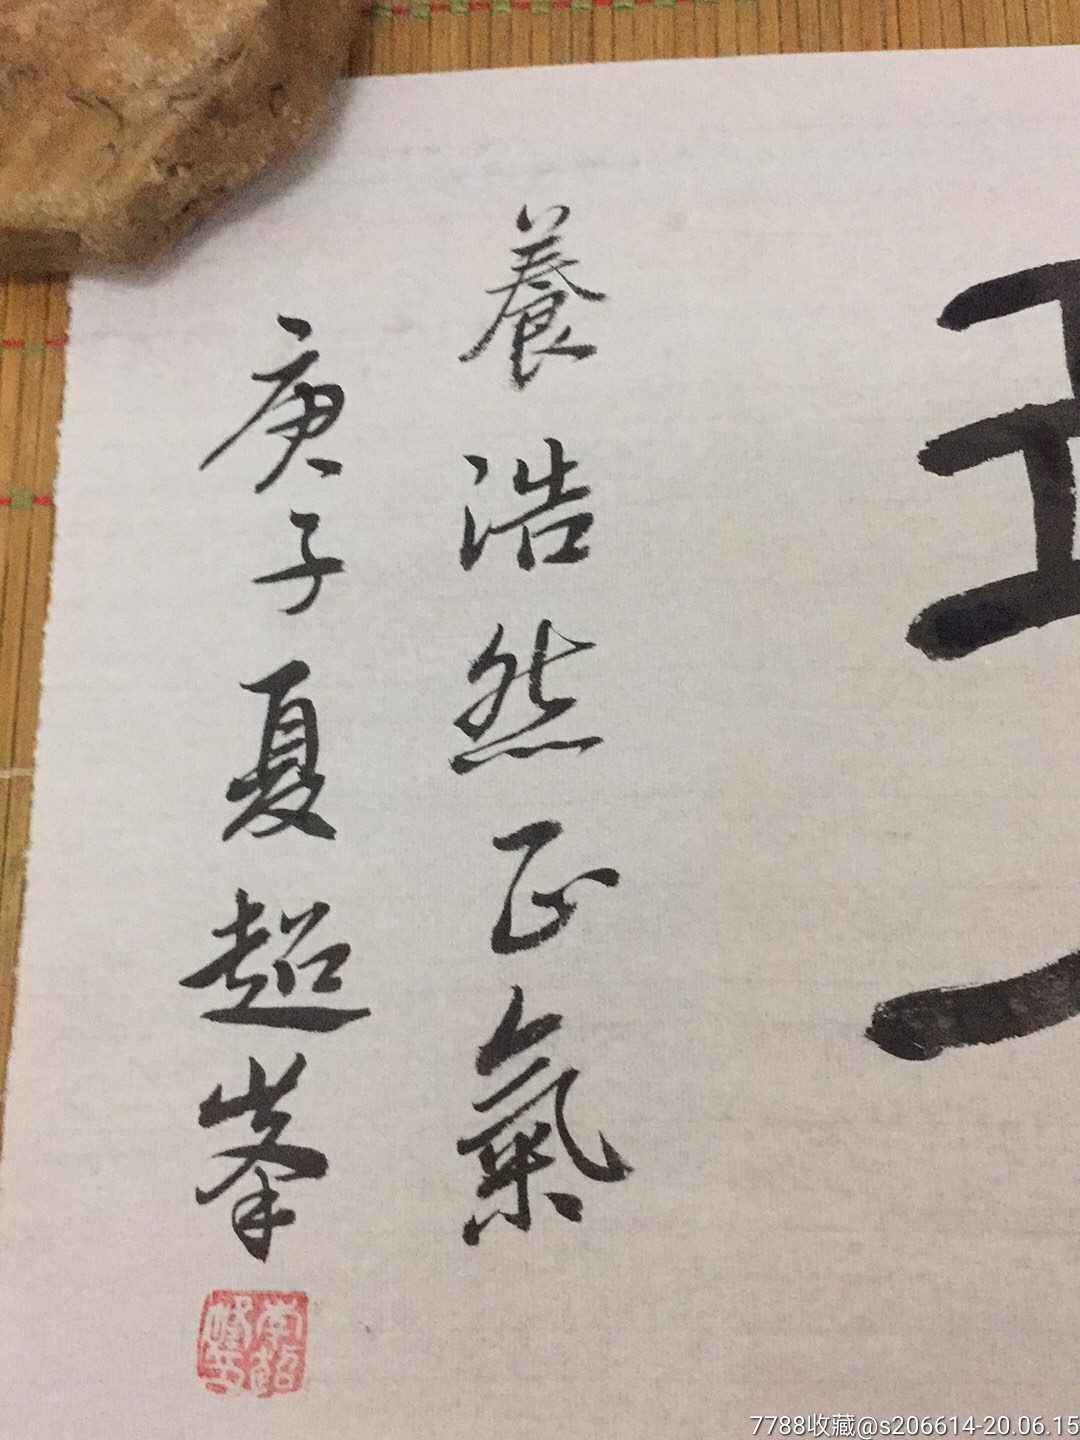 養浩然正氣
庚子夏超峯
7788收藏@s206614-20.06.15